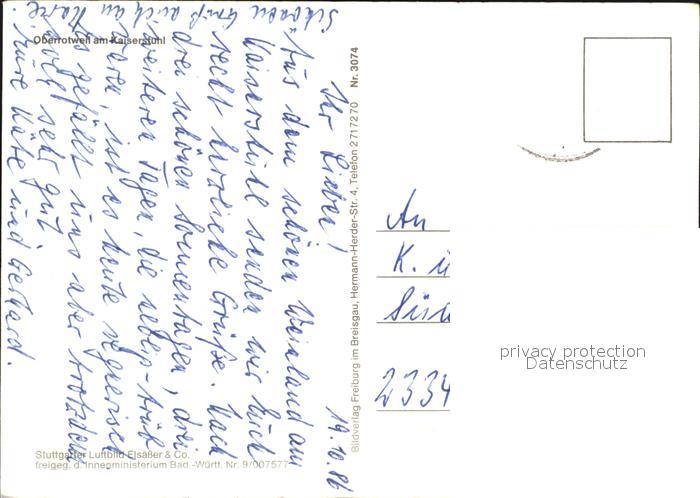 Oberrotweil am Kaiserstuhl
19.10.86
Ihr Lieben!
Aus dem schönen Weinland am
Kaiserstuhl senden wir Euch
recht herzliche Grüße. Nach
drei schönen Sonnentagen, drei
weiteren Tagen, die neblig-trüb
waren, ist es heute regnerisch
Es gefällt uns aber trotzdem
sehr gut
Eure Käte und Gerhard.
Gruß auch an
Bildverlag Freiburg im Breisgau, Hermann-Herder-Str. 4, Telefon 2717270 Nr. 3074
An
K. u
2334
privacy protection
Datenschutz
Stuttgarter Luftbild Elsäßer & Co.
freigeg. d. Innenministerium Bad.-Württ. Nr. 9/007577